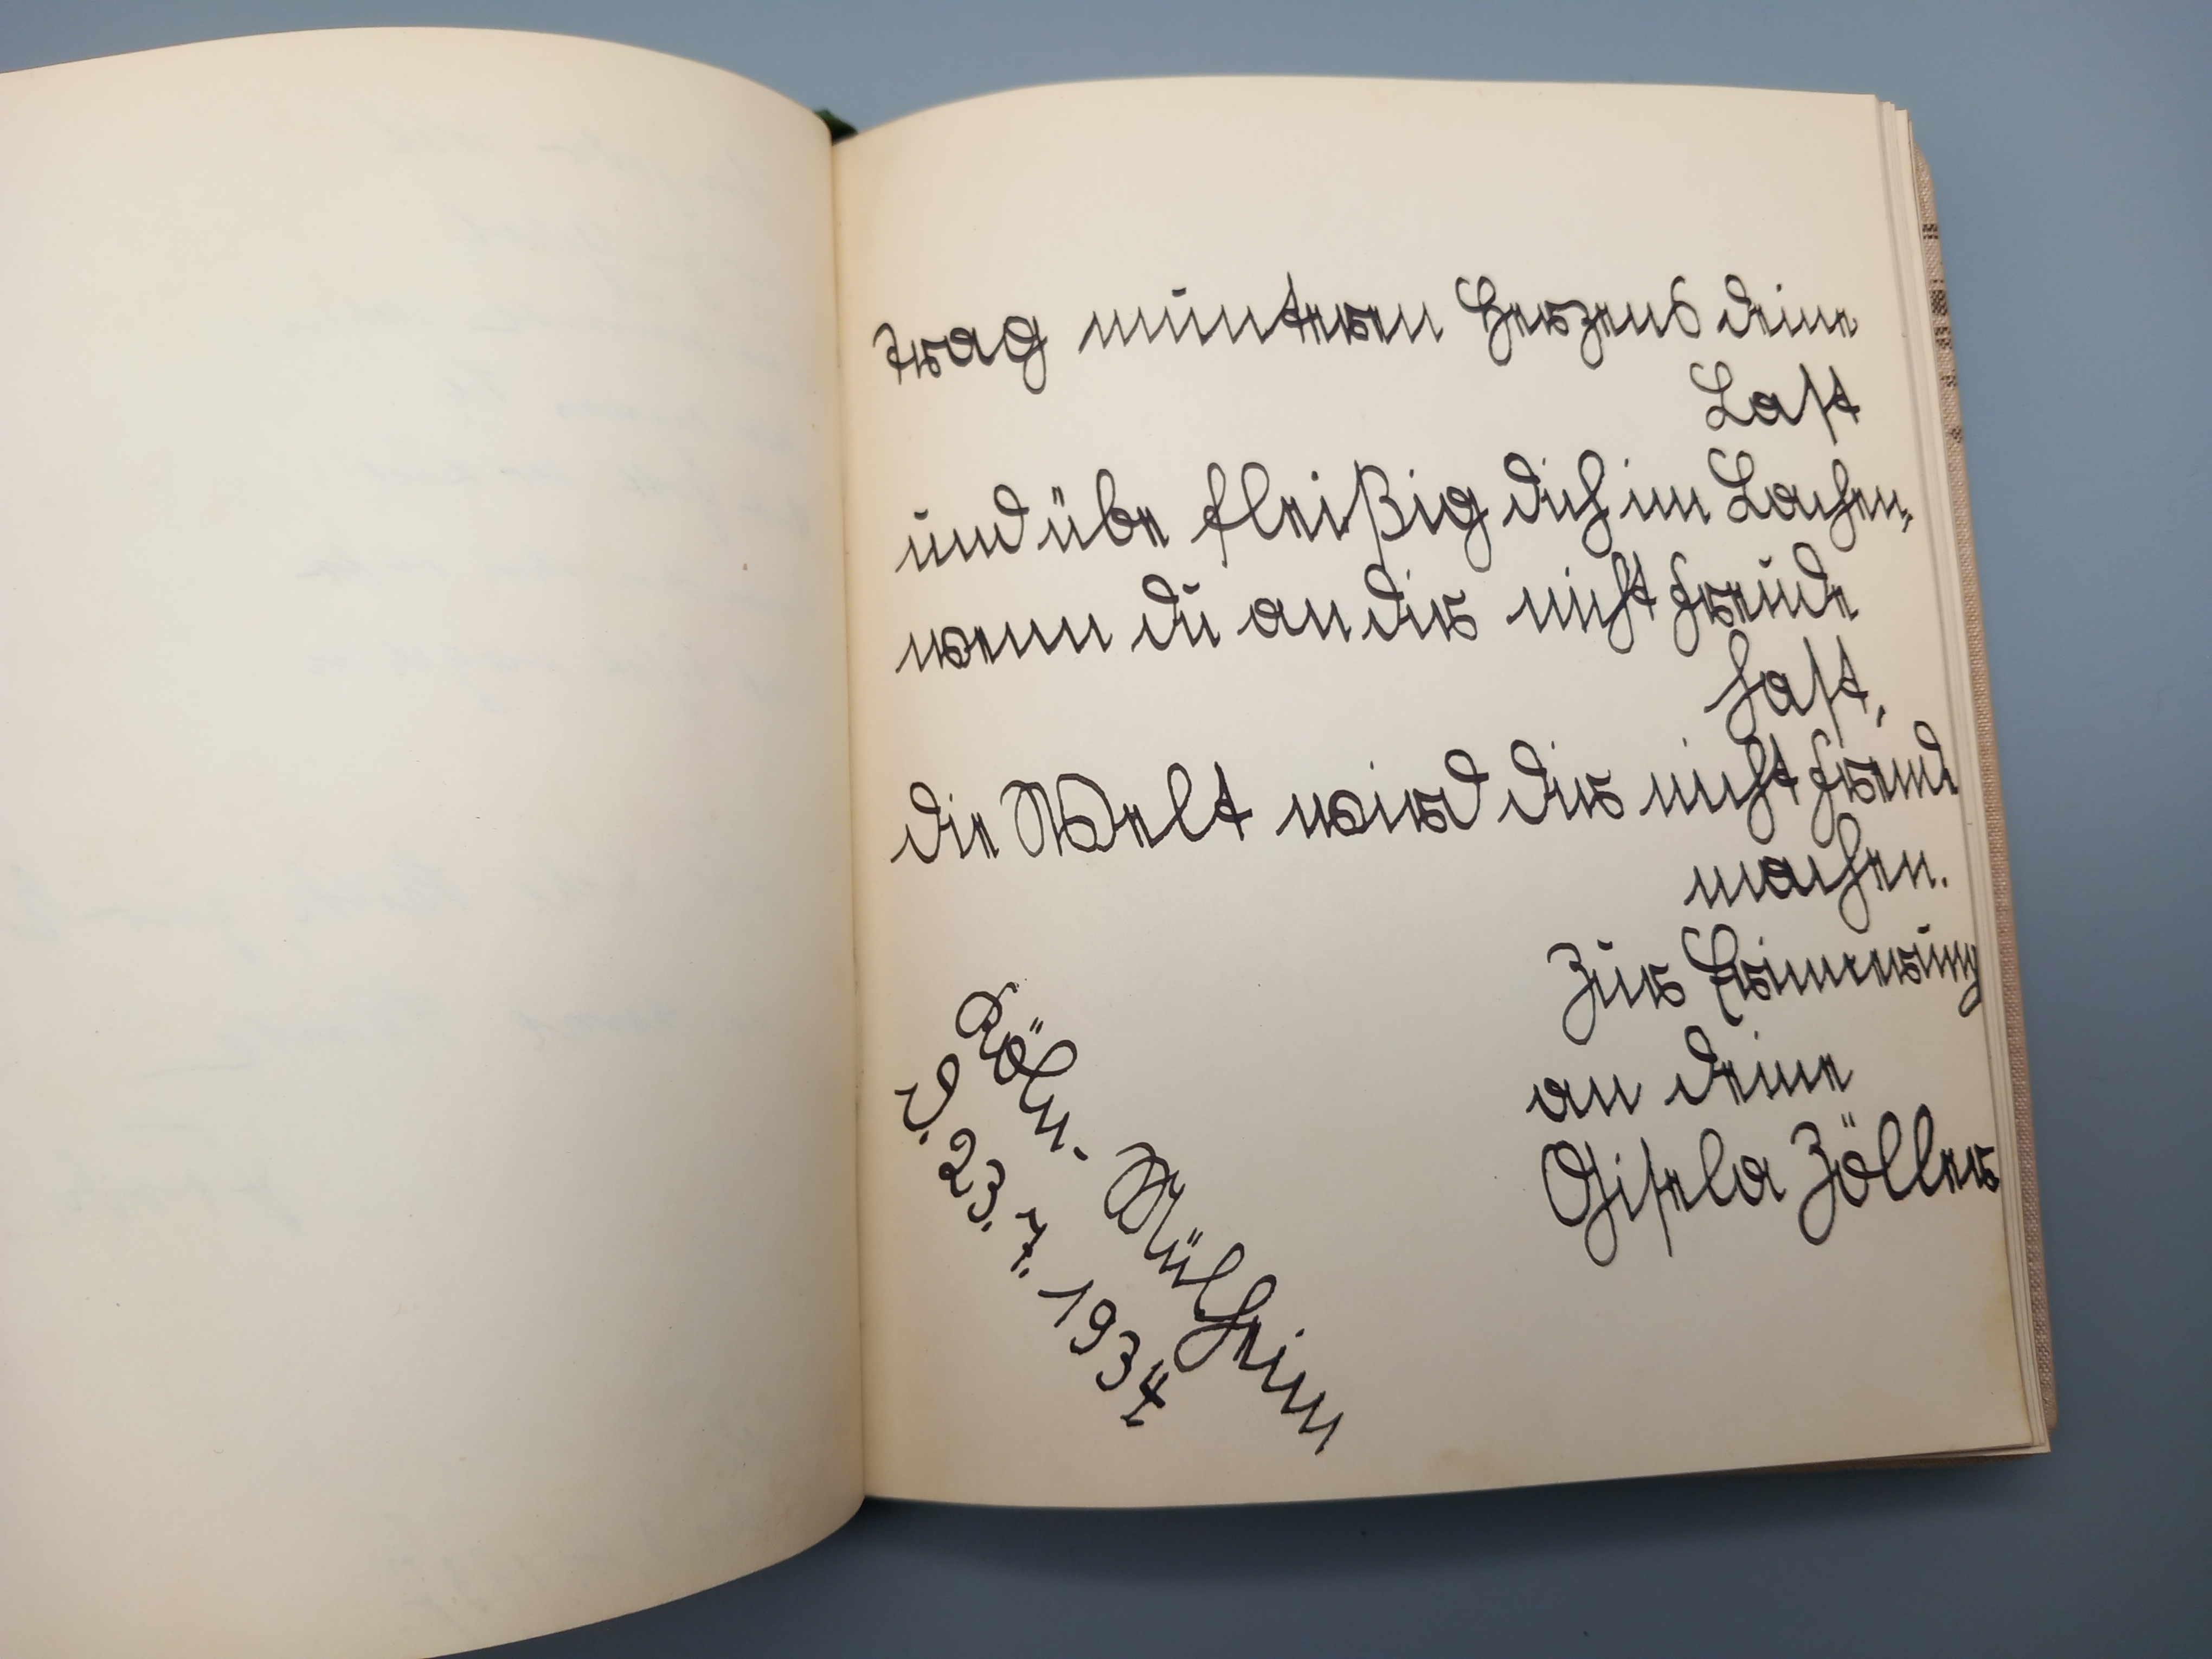 trag munteren Herzens deine
Last
und übe fleißig dich im Lachen,
wenn du an dir nicht Freude
hast,
die Welt wird dir nicht Freude
machen.
Zur Erinnerung
an deine
Gisela Zöller
Köln-Mülheim
d. 23. 7. 1934